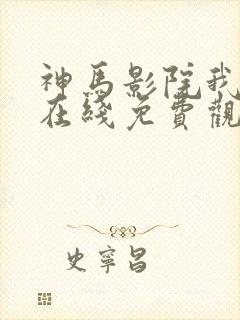 神馬影院我
在綫免費觀
史寧昌